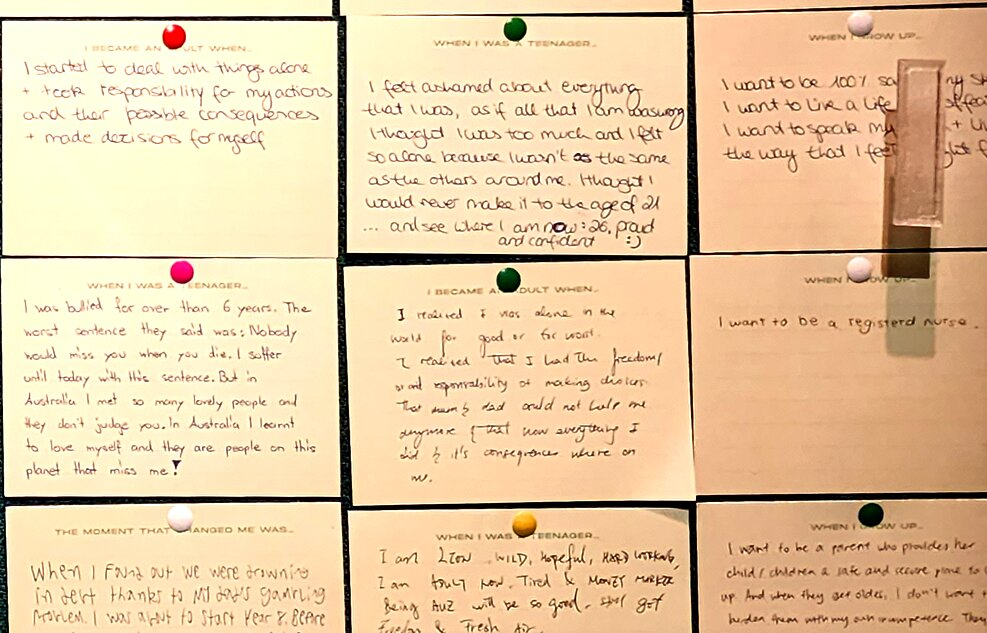 I BECAME AN ULT WHEN...
I started to deal with things alone
+ took responsibility for my actions
and their possible consequences
+ made decisions for myself
WHEN I WAS A TEENAGER...
I felt ashamed about everything
that I was, as if all that I am was wrong
I thought I was too much and I felt
so alone because I wasn't as the same
as the others around me. I thought I
would never make it to the age of 21
... and see where I am now: 26, proud
and confident :)
WHEN I ROW UP...
I want to be 100% my
I want to live a life
I want to speak my +
the way that I feel
WHEN I WAS A EENAGER...
I was bullied for over than 6 years. The
worst sentence they said was: Nobody
would miss you when you die. I suffer
until today with this sentence. But in
Australia I met so many lovely people and
they don't judge you. In Australia I learnt
to love myself and they are people on this
planet that miss me!
I BECAME A DULT WHEN...
I realised I was alone in the
world for good or for worst.
I realised that I had the freedom/
and reponsability of making choices
That mum & dad could not help me
anymore & that now everything I
did & it's consequences where on
me.
WHEN I ROW UP...
I want to be a registerd nurse.
THE MOMENT THAT HANGED ME WAS...
When I found out we were drowning
in debt thanks to my dad's gambling
problem. I was about to start Year 8. Before
WHEN I WAS TEENAGER...
I am LION, WILD, Hopeful, HARD WORKING,
I am ADULT NOW. Tired & MONEY
Being AUZ will be so good. still get
Freedom & Fresh Air.
WHEN I ROW UP...
I want to be a parent who provides her
child/children a safe and secure place to
up. And when they get older, I don't want
burden them with my own incompetence. They